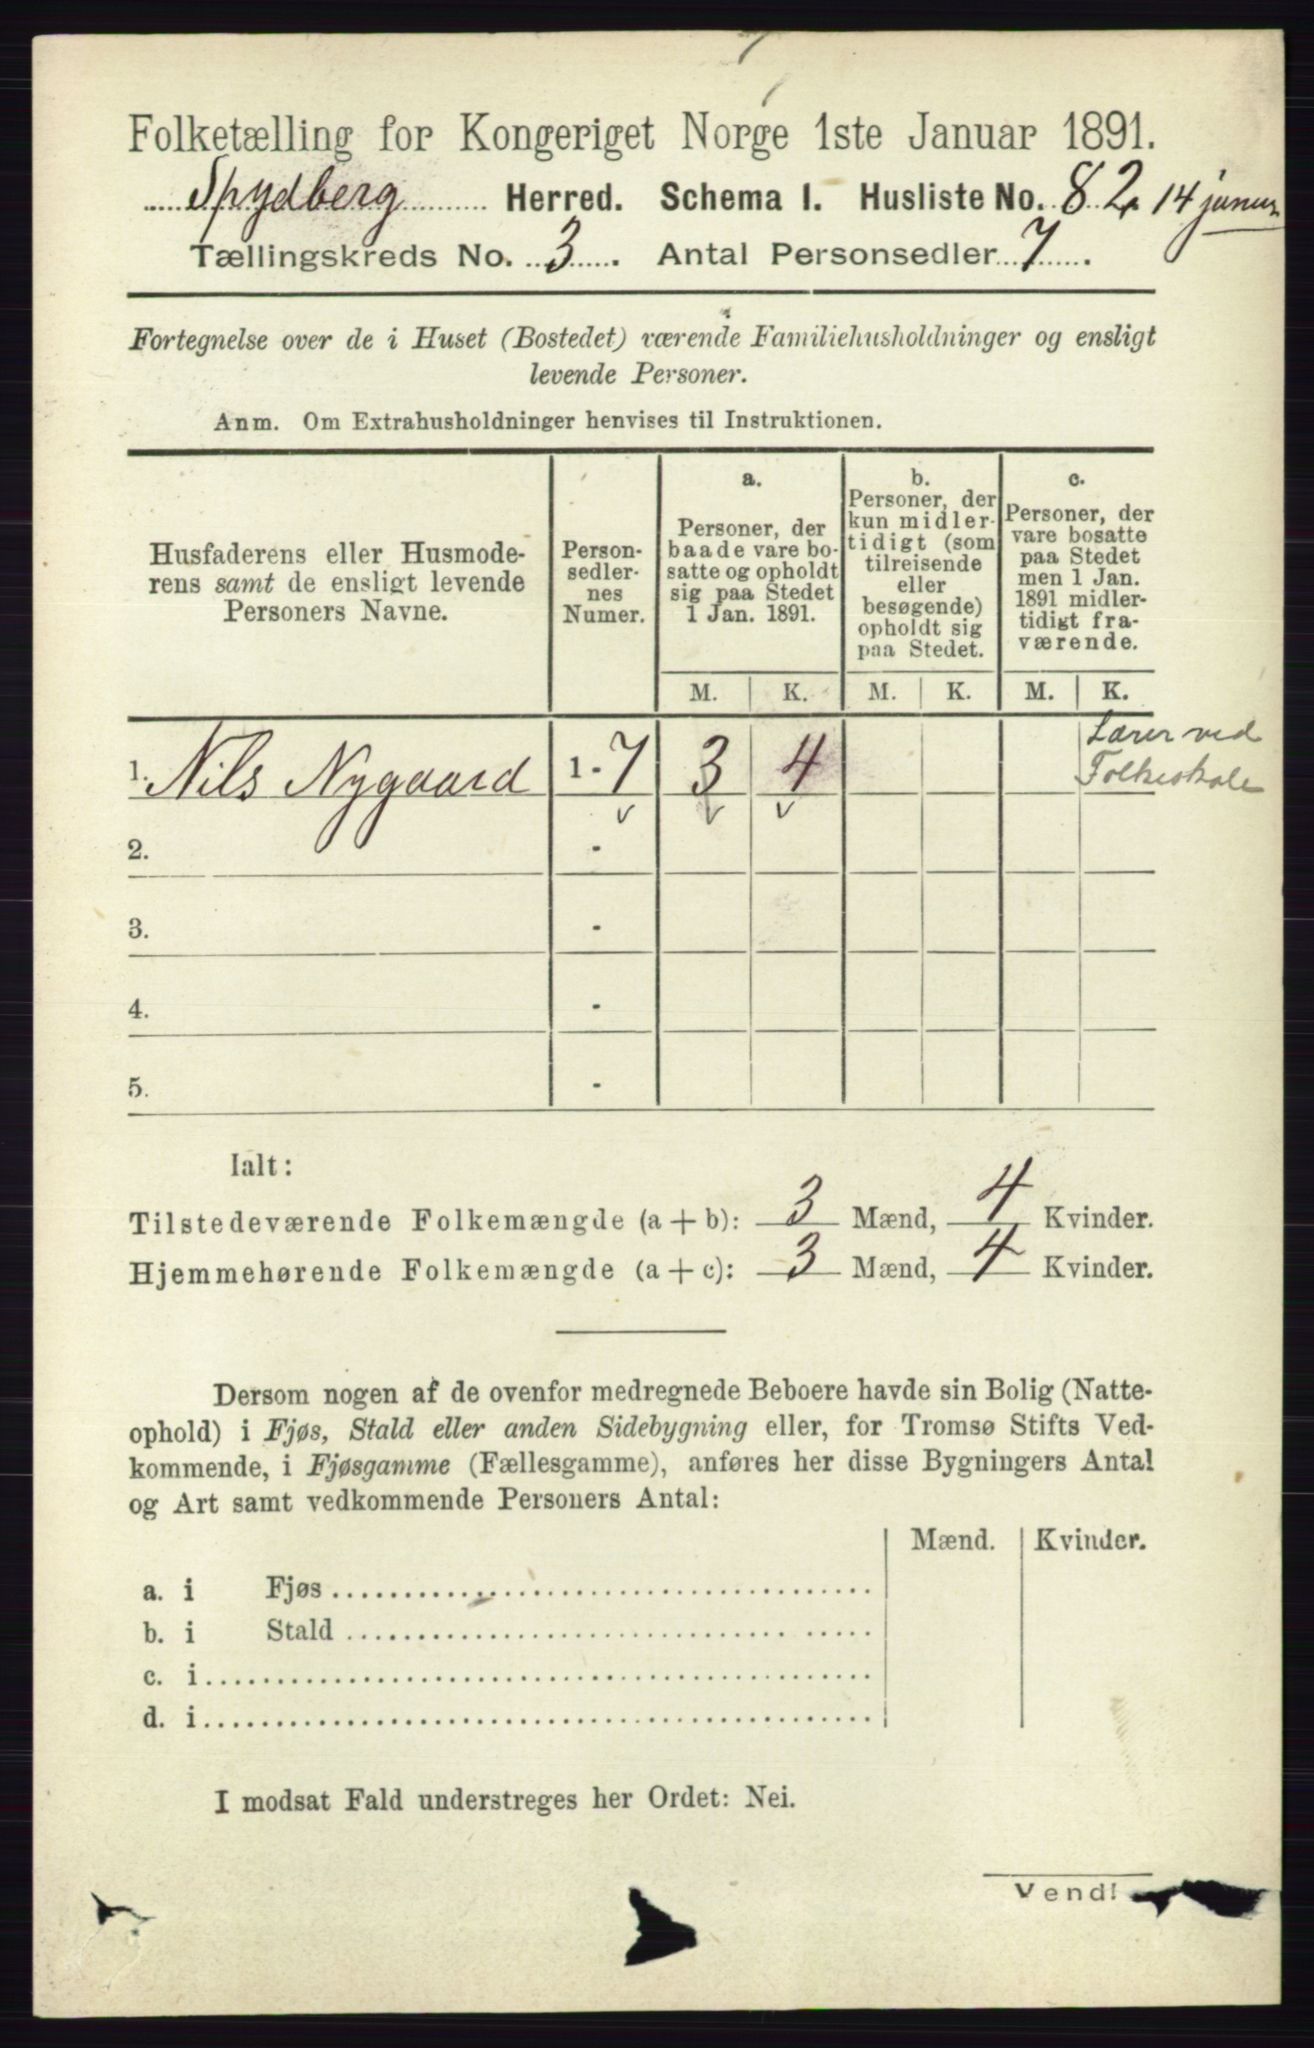 Folketælling for Kongeriget Norge 1ste Januar 1891.
Spydberg Herred. Schema I. Husliste No. 82. 14
Tællingskreds No. 3. Antal Personsedler 7.
Fortegnelse over de i Huset (Bostedet) værende Familiehusholdninger og ensligt
levende Personer.
Anm. Om Extrahusholdninger henvises til Instruktionen.
Husfaderens eller Husmode-
rens samt de ensligt levende
Personers Navne.
Person-
sedler-
nes
Numer.
a.
Personer, der
baade vare bo-
satte og opholdt
sig paa Stedet
1 Jan. 1891.
b.
Personer, der
kun midler-
tidigt (som
tilreisende
eller
besøgende)
opholdt sig
paa Stedet.
c.
Personer, der
vare bosatte
paa Stedet
men 1 Jan.
1891 midler-
tidigt fra-
værende.
M. K. M. K. M. K.
1. Nils Nygaard 1 - 7 3 4
Lærer ved
Folkeskole
2. -
3. -
4. -
5. -
Ialt:
Tilstedeværende Folkemængde (a + b): 3 Mænd, 4 Kvinder.
Hjemmehørende Folkemængde (a + c): 3 Mænd, 4 Kvinder.
Dersom nogen af de ovenfor medregnede Beboere havde sin Bolig (Natte-
ophold) i Fjøs, Stald eller anden Sidebygning eller, for Tromsø Stifts Ved-
kommende, i Fjøsgamme (Fællesgamme), anføres her disse Bygningers Antal
og Art samt vedkommende Personers Antal:
Mænd. Kvinder.
a. i Fjøs
b. i Stald
c. i
d. i
I modsat Fald understreges her Ordet: Nei.
Vend!